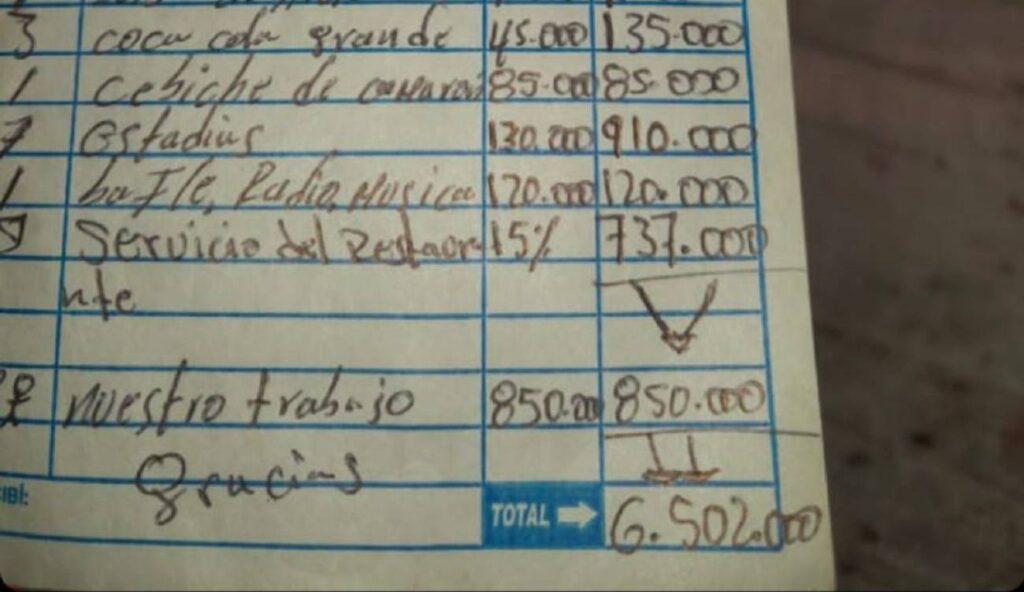 3 coca cola grande 45.000 135.000
1 Cebiche de camaron 85.000 85.000
7 Estadius 130.000 910.000
1 bafle, Radio, Musica 120.000 120.000
Servicio del Restaora 15% 737.000
nte
nuestro trabajo 850.000 850.000
Gracias
TOTAL 6.502.000